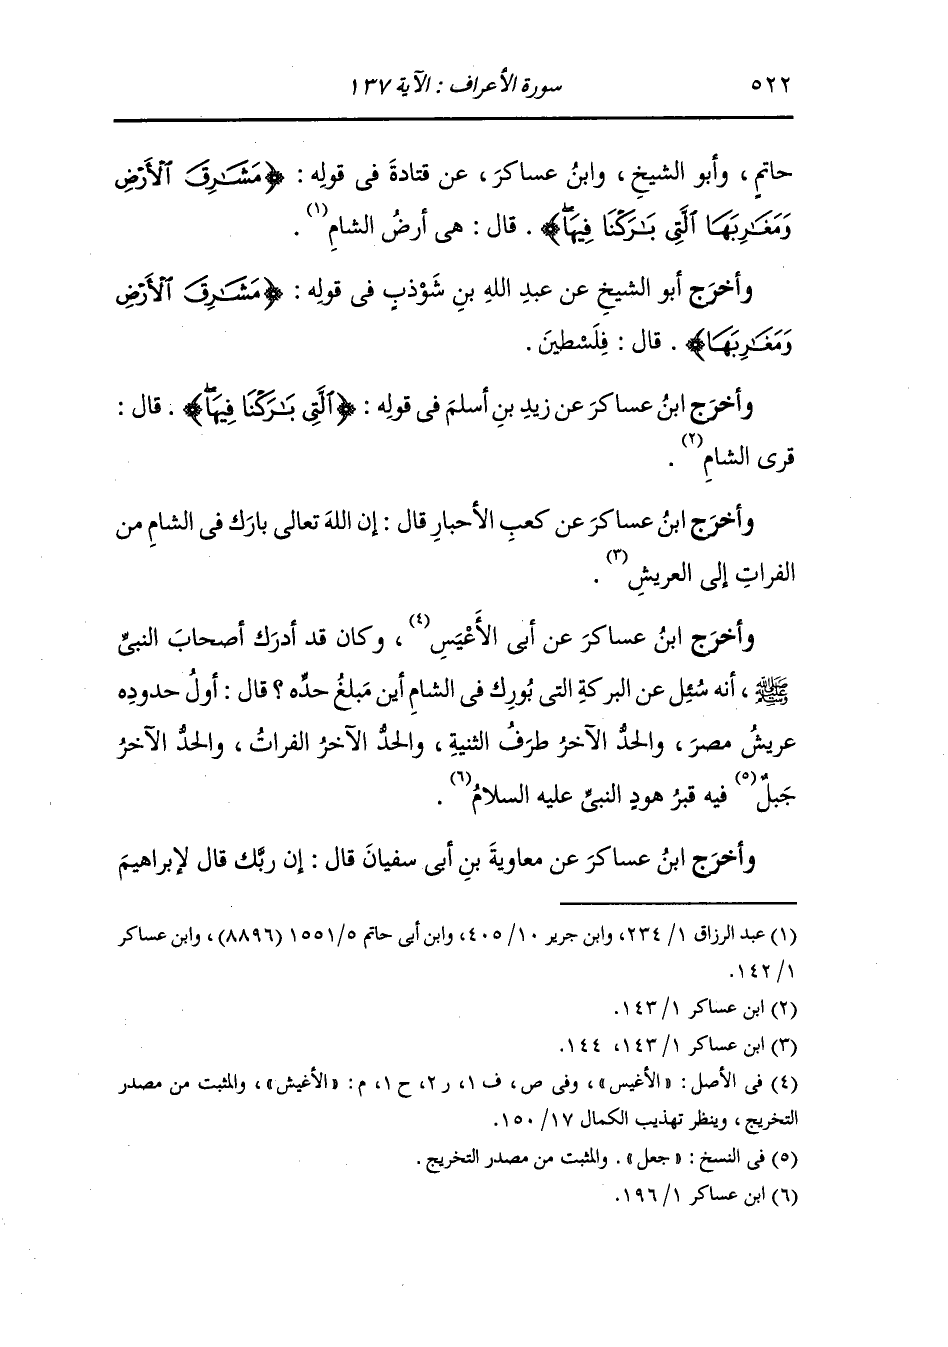 ٥٢٢
سورة الأعراف : الآية ١٣٧
حاتمٍ ، وأبو الشيخِ ، وابنُ عساكرَ ، عن قتادةَ فى قولِه : ﴿مَشَـٰرِقَ ٱلْأَرْضِ
وَمَغَـٰرِبَهَا ٱلَّتِى بَـٰرَكْنَا فِيهَاۖ﴾ . قال : هى أرضُ الشامِ(١) .
وأخرَج أبو الشيخِ عن عبدِ اللهِ بنِ شَوْذبٍ فى قولِه : ﴿مَشَـٰرِقَ ٱلْأَرْضِ
وَمَغَـٰرِبَهَا﴾ . قال : فِلَسْطينَ .
وأخرَج ابنُ عساكرَ عن زيدِ بنِ أسلمَ فى قولِه : ﴿ٱلَّتِى بَـٰرَكْنَا فِيهَاۖ﴾ . قال :
قرى الشامِ(٢) .
وأخرَج ابنُ عساكرَ عن كعبِ الأحبارِ قال : إن اللهَ تعالى بارَك فى الشامِ من
الفراتِ إلى العريشِ(٣) .
وأخرَج ابنُ عساكرَ عن أبى الأَعْيَسِ(٤) ، وكان قد أدرَك أصحابَ النبىِّ
ﷺ ، أنه سُئِل عن البركةِ التى بُورِك فى الشامِ أين مَبلغُ حدِّه ؟ قال : أولُ حدودِه
عريشُ مصرَ ، والحدُّ الآخرُ طرَفُ الثنيةِ ، والحدُّ الآخرُ الفراتُ ، والحدُّ الآخرُ
جَبلٌ(٥) فيه قبرُ هودٍ النبىِّ عليه السلامُ(٦) .
وأخرَج ابنُ عساكرَ عن معاويةَ بنِ أبى سفيانَ قال : إن ربَّك قال لإبراهيمَ
(١) عبد الرزاق ١/ ٢٣٤، وابن جرير ١٠/ ٤٠٥، وابن أبى حاتم ٥/ ١٥٥١ (٨٨٩٦) ، وابن عساكر
١/ ١٤٢.
(٢) ابن عساكر ١/ ١٤٣.
(٣) ابن عساكر ١/ ١٤٣، ١٤٤.
(٤) فى الأصل : «الأغيس» ، وفى ص ، ف ١، ر ٢، ح ١، م : «الأغيش» ، والمثبت من مصدر
التخريج ، وينظر تهذيب الكمال ١٧/ ١٥٠.
(٥) فى النسخ : «جعل» . والمثبت من مصدر التخريج .
(٦) ابن عساكر ١/ ١٩٦.